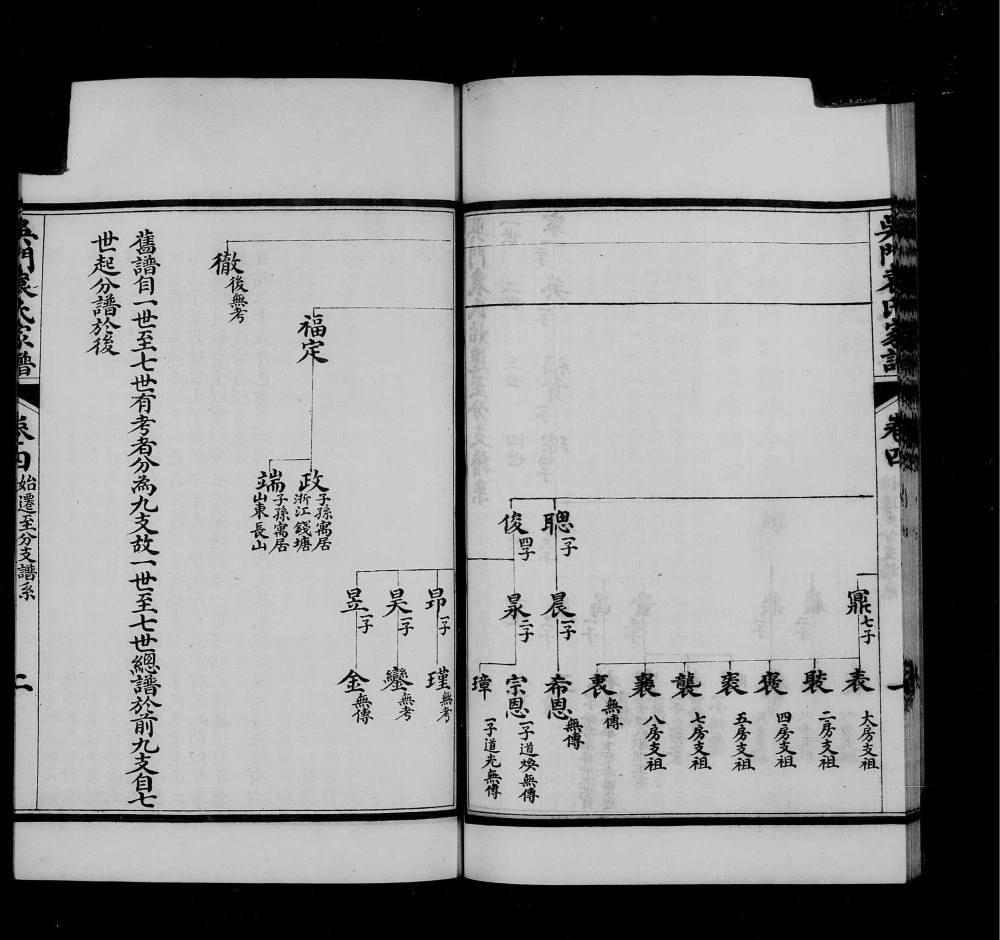 吳門袁氏家譜
卷四
一
鼐 七子
表 大房支祖
褧 二房支祖
褒 四房支祖
裘 五房支祖
襲 七房支祖
襄 八房支祖
裏 無傳
聰 一子
晨 一子
希恩 無傳
俊 四子
晁 二子
宗恩 一子道煥無傳
璋 一子道光無傳
昂 一子
瑾 無考
昊 一子
鑾 無考
昱 一子
金 無傳
福定
政 子孫寓居
浙江錢塘
端 子孫寓居
山東長山
徹 後無考
舊譜自一世至七世有考者分為九支故一世至七世總譜於前九支自七
世起分譜於後
吳門袁氏家譜
卷四
始遷至分支譜系
二